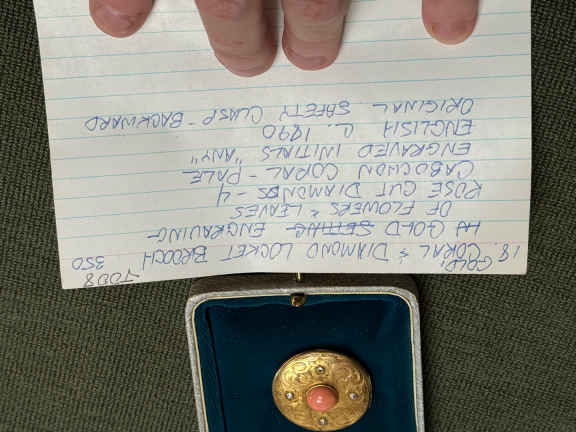 7008
18. GOLD, CORAL & DIAMOND LOCKET BROOCH 350
IN GOLD SETTING ENGRAVING
OF FLOWERS & LEAVES
ROSE CUT DIAMONDS - 4
CABOCHON CORAL - PALE
ENGRAVED INITIALS "ANY"
ENGLISH C. 1890
ORIGINAL SAFETY CLASP - BACKWARD